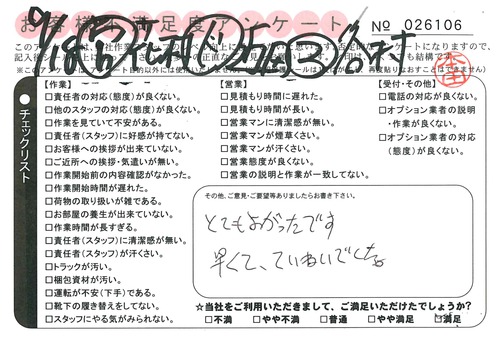 お客様満足度アンケート
No 026106
チェックリスト
【作業】
□責任者の対応(態度)が良くない。
□他のスタッフの対応(態度)が良くない。
□作業を見ていて不安がある。
□責任者(スタッフ)に好感が持てない。
□お客様への挨拶が出来ていない。
□ご近所への挨拶・気遣いが無い。
□作業開始前の内容確認がなかった。
□作業開始時間が遅れた。
□荷物の取り扱いが雑である。
□お部屋の養生が出来ていない。
□作業時間が長すぎる。
□責任者(スタッフ)に清潔感が無い。
□責任者(スタッフ)が汗くさい。
□トラックが汚い。
□梱包資材が汚い。
□運転が不安(下手)である。
□靴下の履き替えをしてない。
□スタッフにやる気がみられない。
【営業】
□見積もり時間に遅れた。
□見積もり時間が長い。
□営業マンに清潔感が無い。
□営業マンが煙草くさい。
□営業マンが汗くさい。
□営業態度が良くない。
□営業の説明と作業が一致してない。
【受付・その他】
□電話の対応が良くない。
□オプション業者の説明
・作業が良くない。
□オプション業者の対応
(態度)が良くない。
その他、ご意見・ご要望等ありましたらお書き下さい。
とてもよかったです
早くて、ていねいでした。
★当社をご利用いただきまして、ご満足いただけたでしょうか?
□不満 □やや不満 □普通 □やや満足 □満足